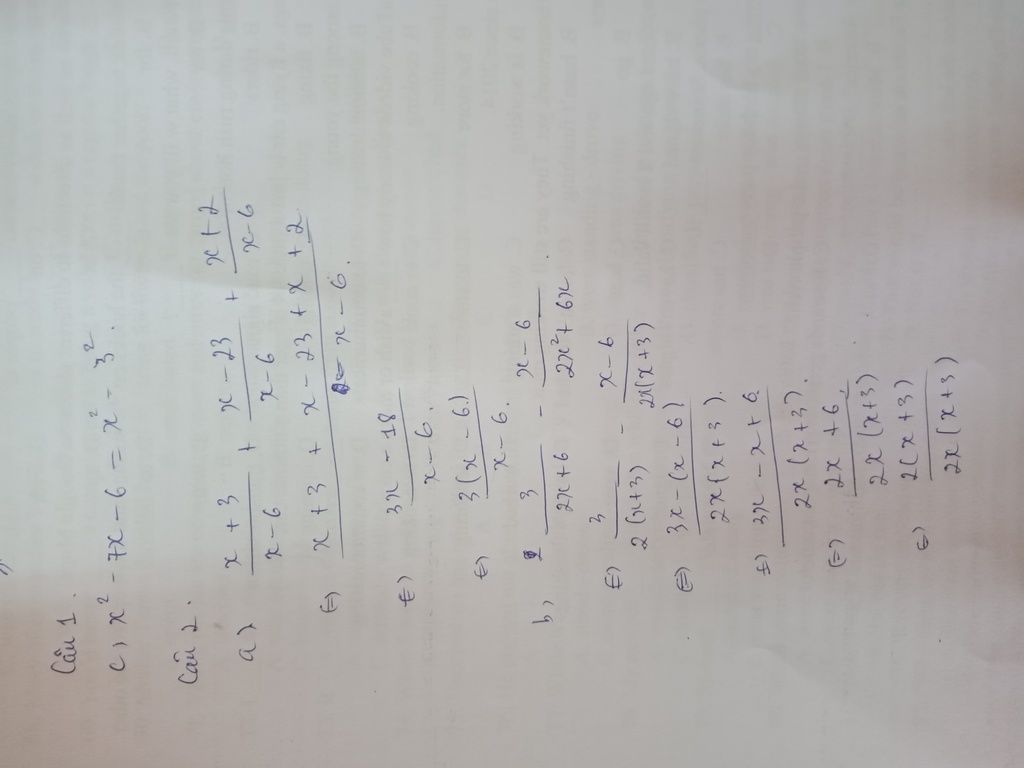 Câu 1.
c, x² - 7x - 6 = x² - 3².
Câu 2.
a) (x + 3)/(x - 6) + (x - 23)/(x - 6) + (x + 2)/(x - 6)
(=) (x + 3 + x - 23 + x + 2)/(x - 6).
(=) (3x - 18)/(x - 6).
(=) (3(x - 6))/(x - 6).
b, 3/(2x + 6) - (x - 6)/(2x² + 6x)
(=) 3/(2(x + 3)) - (x - 6)/(2x(x + 3))
(=) (3x - (x - 6))/(2x(x + 3))
(=) (3x - x + 6)/(2x(x + 3)).
(=) (2x + 6)/(2x(x + 3))
(=) (2(x + 3))/(2x(x + 3))